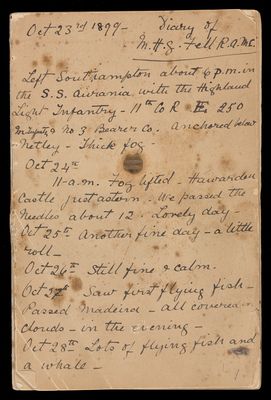 Oct 23rd 1899 - Diary of
M.H.G. Fell R.A.M.C.
Left Southampton about 6 p.m. in
the S.S. Aurania with the Highland
Light Infantry - 11th Co R.E. 250
& No 3 Bearer Co. Anchored below
Netley - Thick fog
Oct 24th
11-a.m. Fog lifted - Hawarden
Castle just astern. We passed the
Needles about 12. Lovely day -
Oct 25th Another fine day - a little
roll -
Oct 26th Still fine & calm.
Oct 27th Saw first flying fish -
Passed Madeira - all covered in
clouds - in the evening -
Oct 28th Lots of flying fish and
a whale -
1